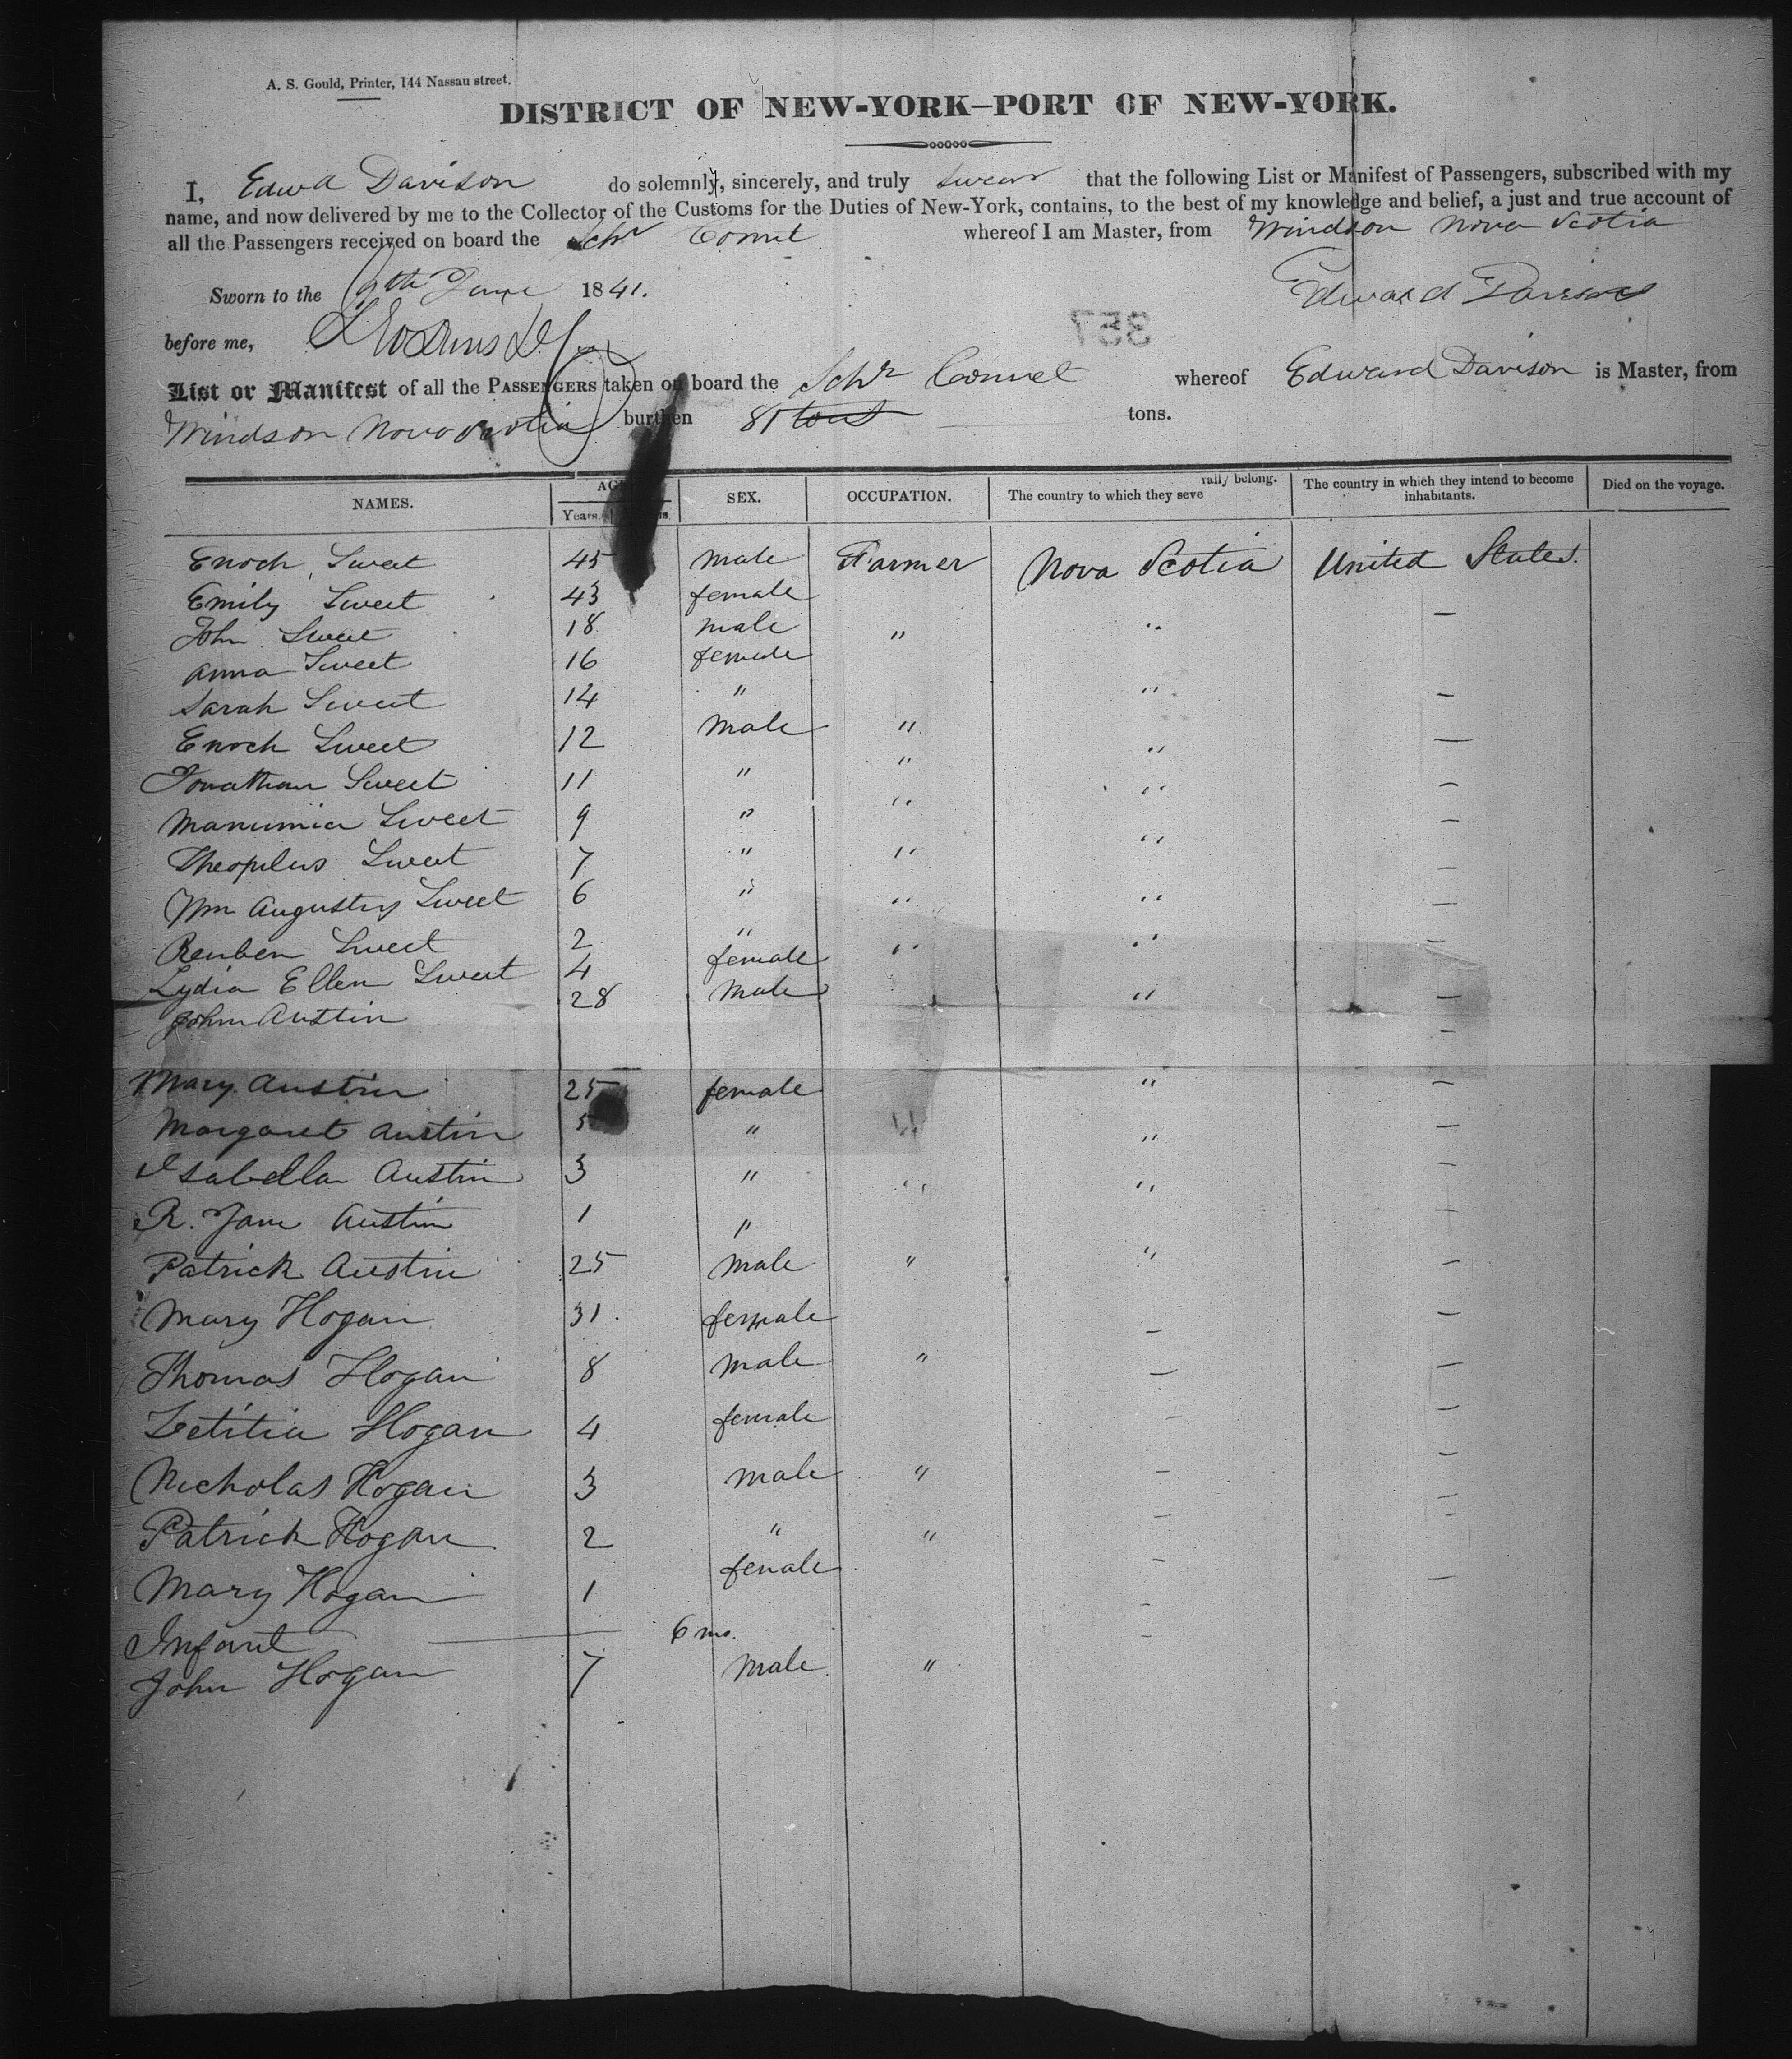 A. S. Gould, Printer, 144 Nassau street.
DISTRICT OF NEW-YORK—PORT OF NEW-YORK.
I, Edwd Davison do solemnly, sincerely, and truly swear that the following List or Manifest of Passengers, subscribed with my
name, and now delivered by me to the Collector of the Customs for the Duties of New-York, contains, to the best of my knowledge and belief, a just and true account of
all the Passengers received on board the Schr Comet whereof I am Master, from Windson Nova Scotia
Sworn to the 9th June 1841. Edward Davison
before me,
357
List or Manifest of all the PASSENGERS taken on board the Schr Comet whereof Edward Davison is Master, from
Windson Nova Scotia burthen 81 tons tons.
NAMES. AGE Years. SEX. OCCUPATION. The country to which they severally belong. The country in which they intend to become inhabitants. Died on the voyage.
Enoch Sweet 45 male Farmer Nova Scotia United States.
Emily Sweet 43 female —
John Sweet 18 male " "
Anna Sweet 16 female
Sarah Sweet 14 " " —
Enoch Sweet 12 Male " " —
Jonathan Sweet 11 " " " —
Manumia Sweet 9 " " " —
Theopilus Sweet 7 " " —
Wm Augustus Sweet 6 " " " —
Reuben Sweet 2 " " " —
Lydia Ellen Sweet 4 female " —
John Austin 28 Male —
Mary Austin 25 female " —
Margaret Austin 5 " " " —
Isabella Austin 3 " " " —
R. Jane Austin 1 " —
Patrick Austin 25 Male " " —
Mary Hogan 31. female — —
Thomas Hogan 8 Male " — —
Letitia Hogan 4 female — —
Nicholas Hogan 3 male " — —
Patrick Hogan 2 " " — —
Mary Hogan 1 female — —
Infant 6 mo. —
John Hogan 7 Male " —